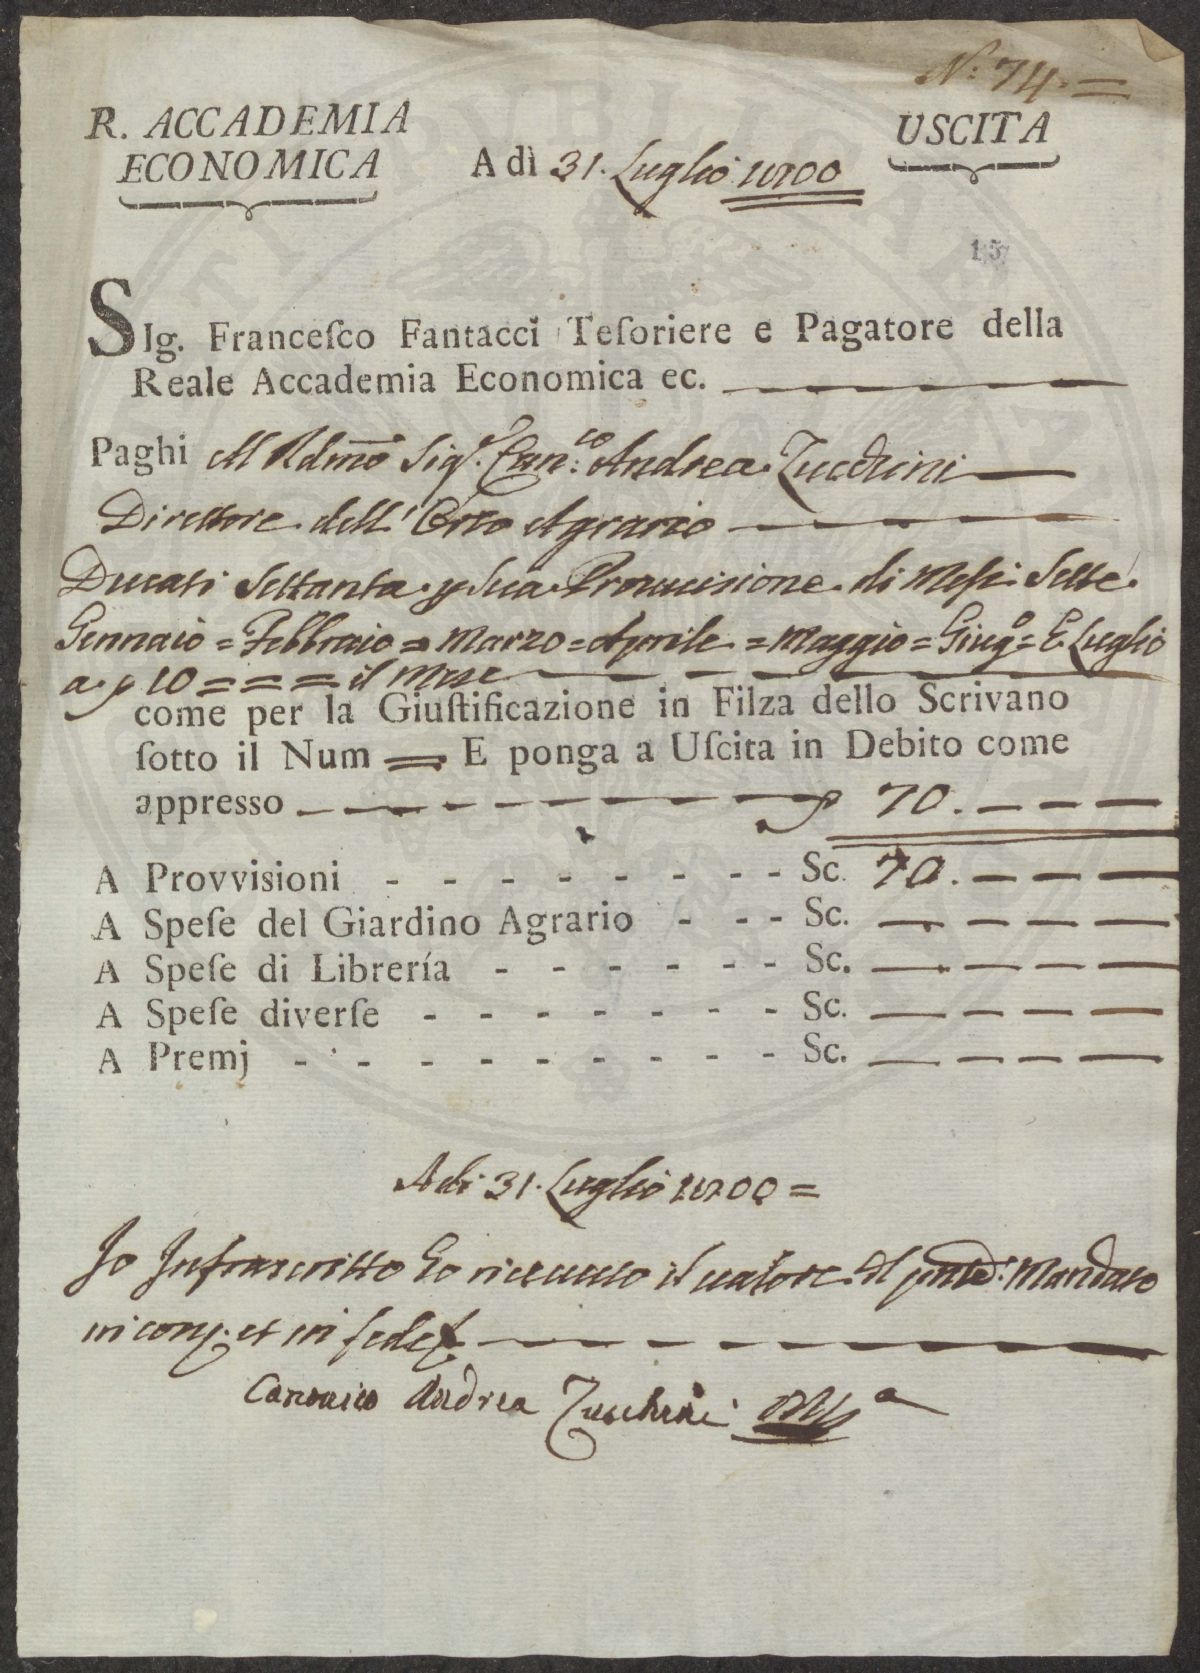 N.° 74. =
R. ACCADEMIA
ECONOMICA
USCITA
A dì 31. Luglio 1800
15
SIg. Franceſco Fantacci Teſoriere e Pagatore della
Reale Accademia Economica ec.
Paghi Al Rdmo Sigr. Can:co Andrea Zucchini
Direttore dell' Orto Agrario
Ducati Settanta p Sua Provvisione di Mesi Sette
Gennaio = Febbraio = Marzo = Aprile = Maggio = Giugo = E Luglio
a 10 = = = il Mese
come per la Giuſtificazione in Filza dello Scrivano
ſotto il Num = E ponga a Uſcita in Debito come
appresso 70. — — —
A Provviſioni - - - - - - - - - Sc. 70. — — —
A Speſe del Giardino Agrario - - - - Sc. — — — —
A Speſe di Librería - - - - - - Sc. — — — —
A Speſe diverſe - - - - - - - Sc. — — — —
A Premj - - - - - - - - - Sc. — — — —
Adi 31. Luglio 1800 =
Io Infrascritto ho ricevuto il valore del pnte Mandato
in cont et in fede
Canonico Andrea Zucchini